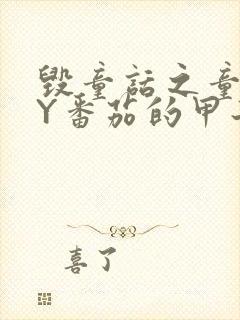 毁童话之童
Y番茄的甲
喜了